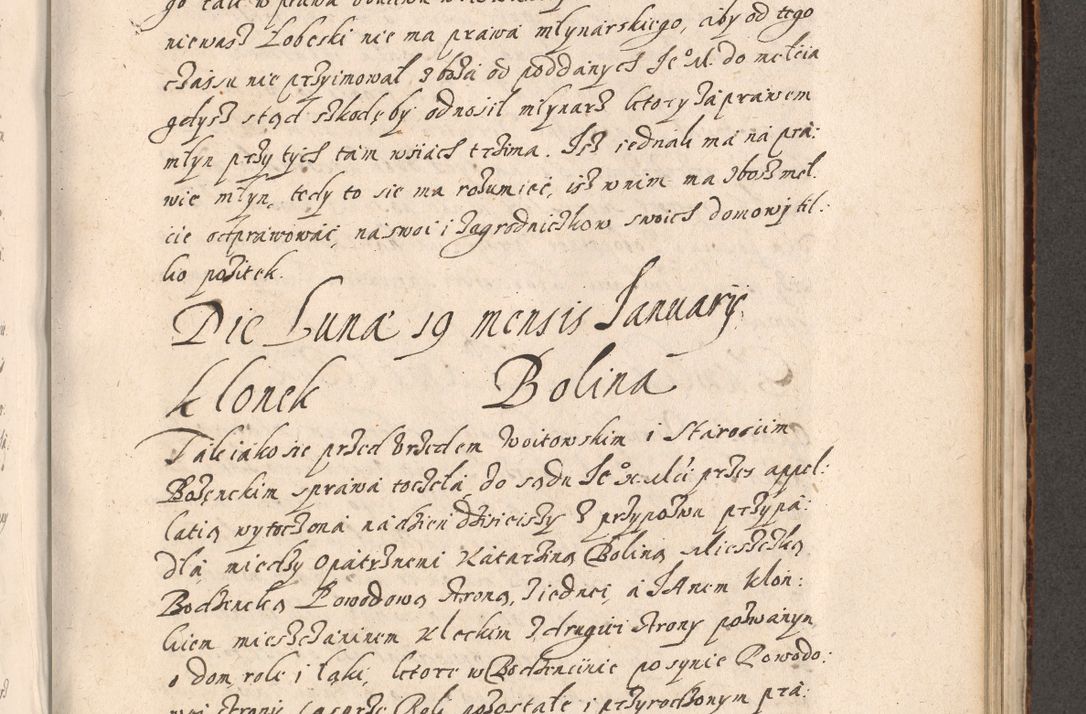 niewasz Łobeski nie ma prawa młynarskiego, aby od tego
czassu nie przyimował zboża od poddanych Je° M. do mełcia
gdysz stąd szkodę by odnosił młynarz ktory za prawem
młyn przy tych tam wsiach trzima. Isz iednak ma na pra:
wie młyn, tedy to sie ma rozumieć, isz w nim ma zbosz meł:
cie odprawować, na swoi i zagrodniczkow swoich domowy til:
ko pożitek.
Die Lunæ 19 mensis Januarij
Klonek Bolina
Tak iako sie przed Vrzędem Woitowskim i Starościm
Bożęnckim sprawa toczeła, do sądu Je° x. Mści przes appel:
latią wytoczona na dzien dzisieiszy z przypozwu przypa:
dła, miedzy Opatrznemi Katarziną Boliną Mieszczką
Bodzencką Powodową stroną, z iednei, a Janem Klon:
kiem mieszczaninem Kleckim z drugiei strony pozwanym
o dom role i łąki, ktore w Bodzencinie po synie Powodo:
wei strony Casprze Boli pozostałe i przyrodzonym pra: